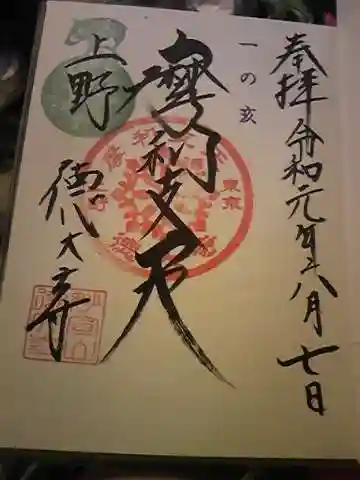 奉拝 令和元年八月七日
一の亥
摩利支天
上野
徳大寺